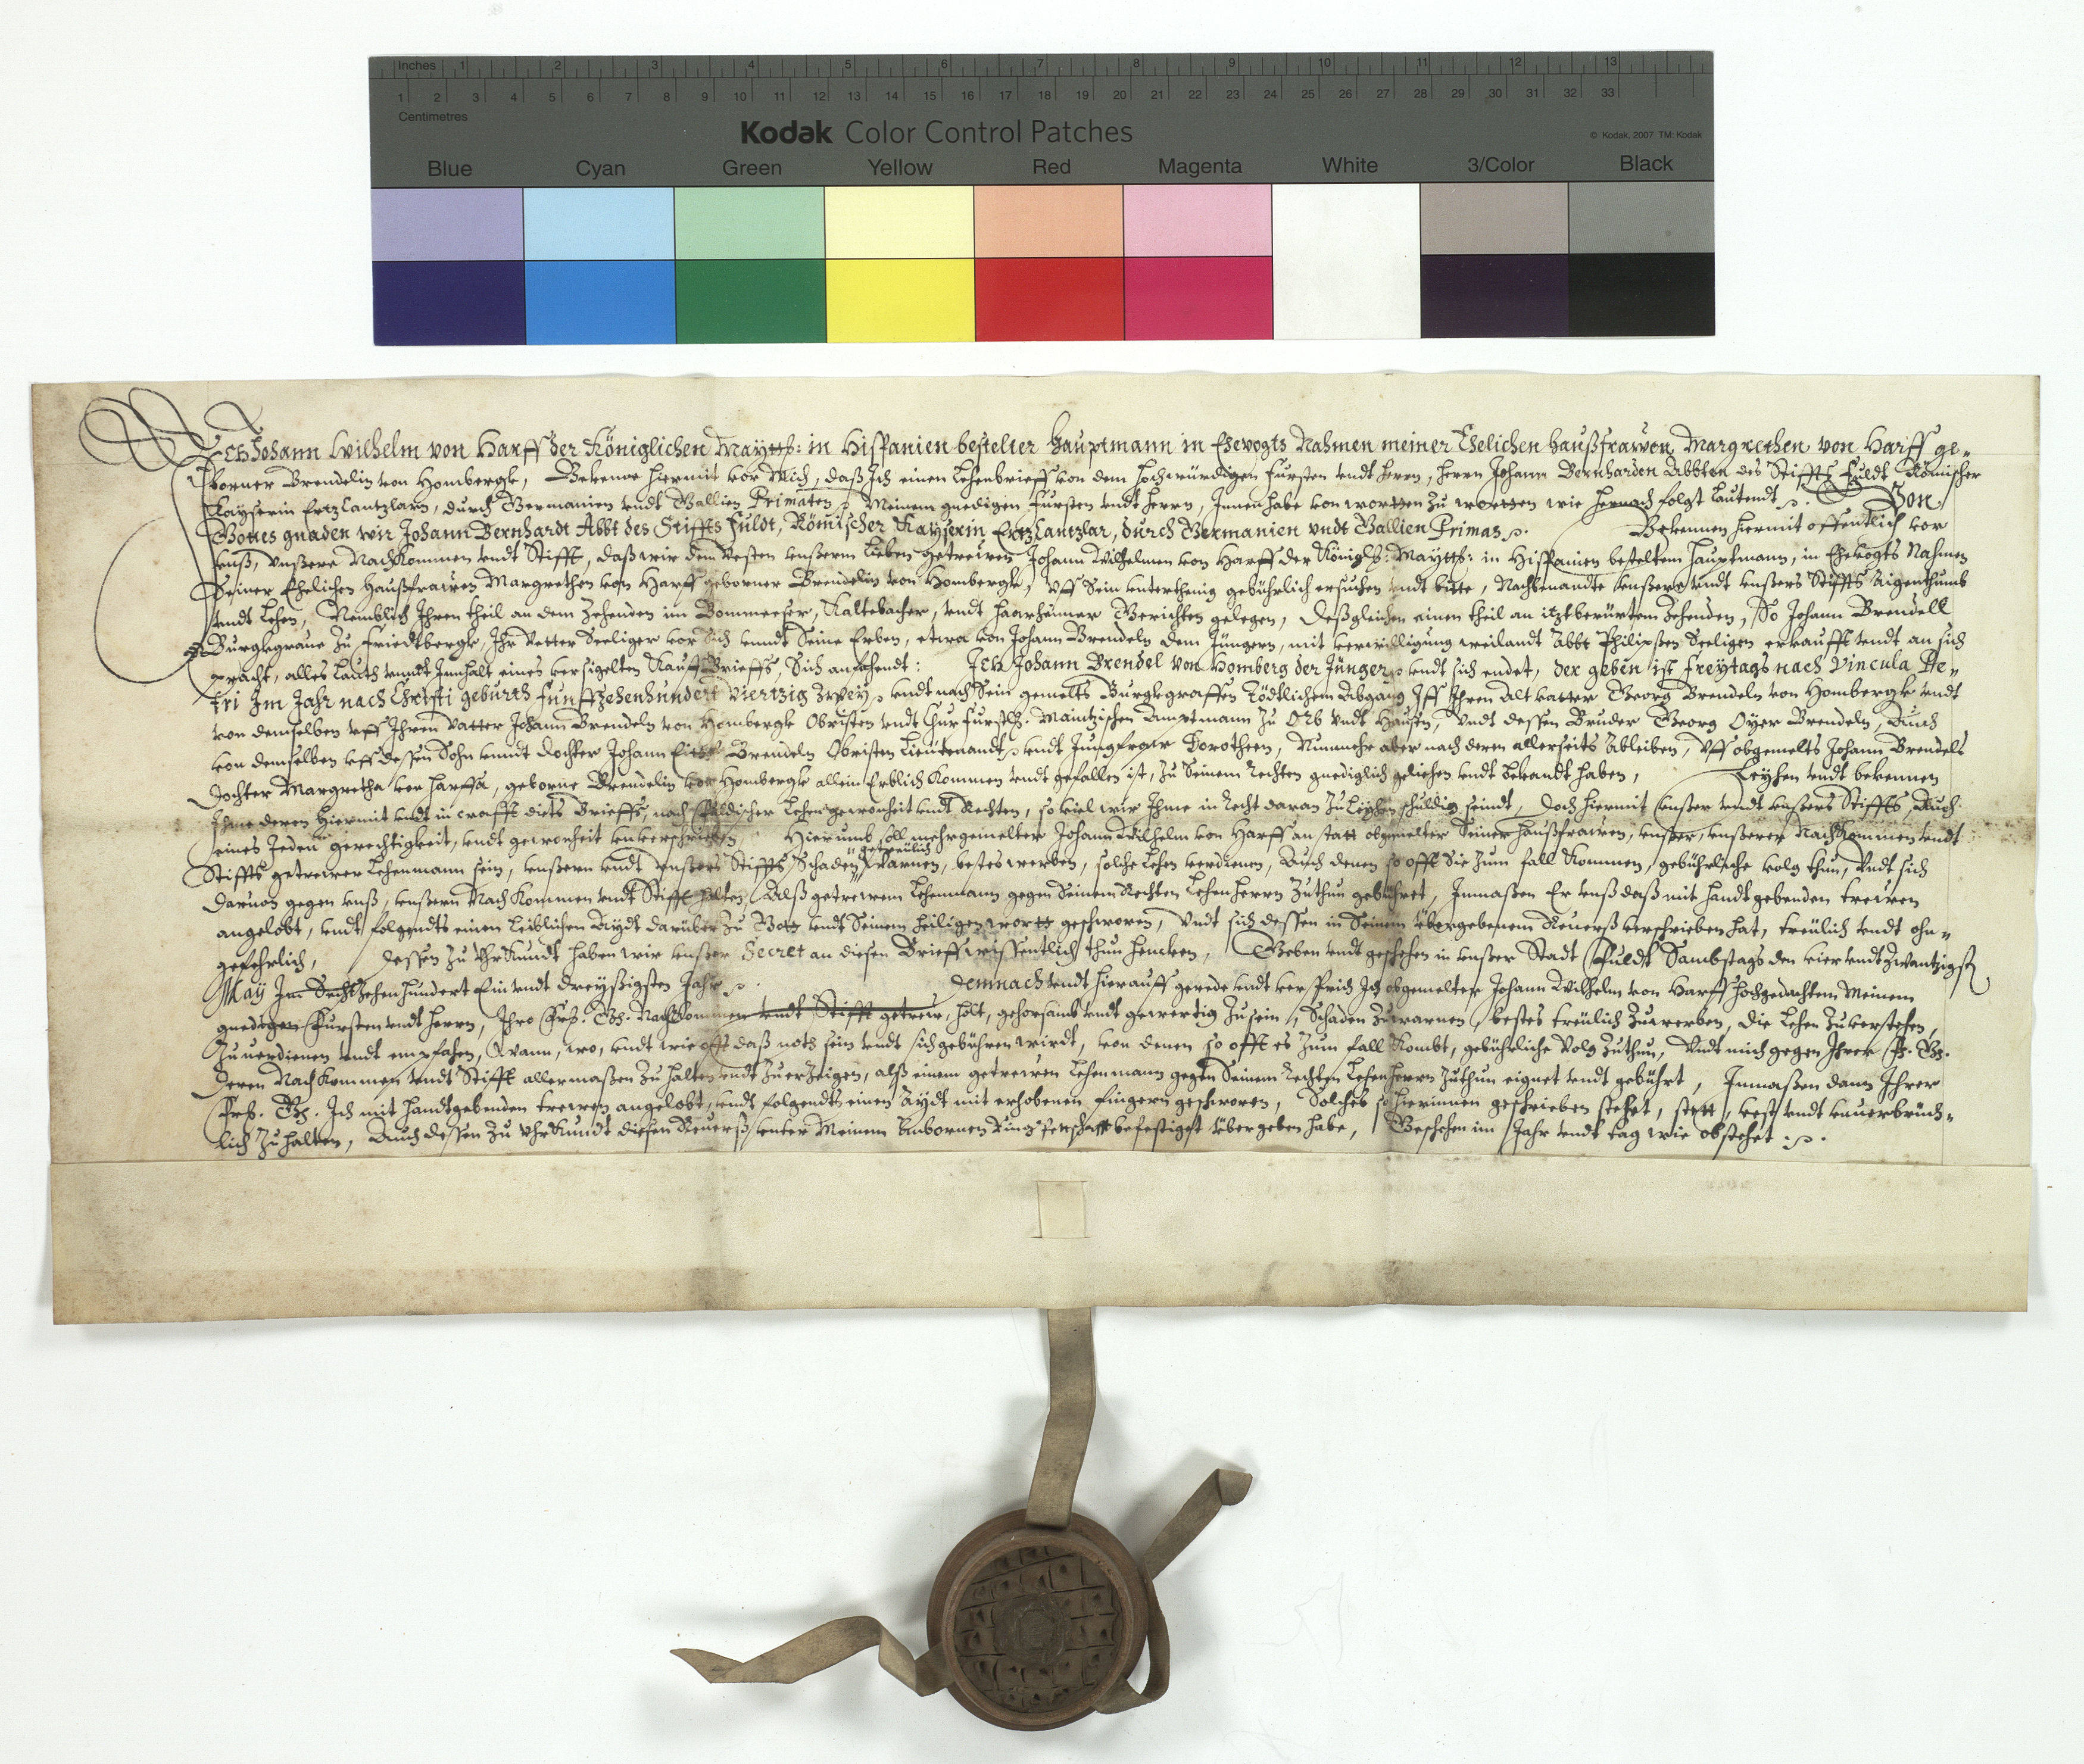 Inches 1 2 3 4 5 6 7 8 9 10 11 12 13
1 2 3 4 5 6 7 8 9 10 11 12 13 14 15 16 17 18 19 20 21 22 23 24 25 26 27 28 29 30 31 32 33
Centimetres
Kodak Color Control Patches
© Kodak, 2007 TM: Kodak
Blue Cyan Green Yellow Red Magenta White 3/Color Black
Ich Johann Wilhelm von Harff der Königlichen Maytt: in Hispanien bestelter Hauptmann in Ehevogts Nahmen meiner Ehelichen haußfrawen Margrethen von Harff ge-
borner Brendelin von Hombergk, Bekenne hiermit vor Mich, daß Ich einen Lehenbrieff von dem hochwürdigen Fursten vndt Herrn, Herrn Johann Bernharden Abbten des Stiffts Fuldt Römischer
Kayserin Ertzcantzlarn, durch Germanien vndt Gallien Primaten, Meinem gnedigen Fursten vndt herrn, Innen habe von wortten zu wortten wie hernach folgt lautendt. Von
Gottes gnaden wir Johann Bernhardt Abbt des Stiffts Fuldt, Römischer Kayserin Ertzcantzlar, durch Germanien vndt Gallien Primas. Bekennen hiermit offentlich vor
vnß, vnßere Nachkommen vndt Stifft, daß wir dem Vesten vnßerm Lieben getrewen Johann Wilhelmen von Harff der Königl: Maytt: in Hispanien besteltem Hauptmann, in Ehevogts Nahmen
Seiner Ehelichen Haußfrawen Margrethen von Harff geborner Brendelin von Hombergk, Vff Sein vnterthenig gebührlich ersuchen vndt bitte, Nachbenandte vnßere vndt vnßers Stiffts Aigenthumb
vndt Lehen, Nemblich Ihren theil an dem Zehenden im Bommerser, Kaltebacher, vndt haarhäimer Gerichten gelegen, Deßgleichen einen theil an itztberürtem Zehenden, So Johann Brendell
Burggraue zu Friedtbergk, Ihr Vetter Seeliger vor Sich vnndt Seine Erben, etwa von Johann Brendeln dem Jüngern, mit verwilligung weilandt Abbt Philipßen Seeligen erkaufft vndt an sich
pracht, alles lauth vnndt Innhalt eines versigelten Kauff Brieffs, Sich anfahendt: Ich Johann Brendel von Homberg der Jünger, vndt sich endet, der geben ist Freytags nach Vincula Pe-
tri Im Jahr nach Christi geburth Funfftzehenhundert Viertzig Zwey, vndt nach Sein gemelts Burgkgraffen Tödtlichem Abgang Iff Ihren Altvatter Georg Brendeln von Hombergk vndt
von demselben vff Ihren Vatter Johann Brendeln von Hombergk Obristen vndt ChurFurstl. Maintzischen Amptmann zu Orb vndt Hausen, Vndt dessen Bruder Georg Oyer Brendeln, Auch
von demselben vff dessen Sohn vnndt Dochter Johann Brendeln Obristen Lieütenandt, vndt Jungfraw Dorotheen, Nunmehr aber nach deren allerseits Ableiben, Vff obgemelts Johann Brendels
Dochter Margretha von Harffa, geborne Brendelin von Hombergk allein Erblich kommen vndt gefallen ist, zu Seinem Rechten gnediglich geliehen vndt bekandt haben, Leyhen vndt bekennen
Ihme deren hiermit vndt in crafft diets Brieffs, nach Fuldischer Lehens gewonheit vndt Rechten, so viel wir Ihme in Recht daran zu Leyhen schuldig seindt, Doch hiermit vnßer vndt vnßers Stiffts, Auch
eines Jeden gerechtigkeit, vndt gewonheit vnverschrieben. Hierumb soll mehrgemelter Johann Wilhelm von Harff an statt obgemelter Seiner haußfrawen, vnßer, vnßerer Nachkommen vndt
getreülich
Stiffts getrewer Lehenmann sein, vnßern vndt vnßers Stiffts Schaden warnen, bestes werben, solche Lehen verdienen, Auch denen so offt Sie zum fall kommen, gebührliche volg thun, Vndt sich
Daruon gegen vnß, vnßern Nachkommen vndt Stifft halten, Alß getrewem Lehenmann gegen Seinem Rechten Lehenherrn zuthun gebühret, Inmaßen Er vnß daß mit handtgebenden trewen
angelobt, vndt folgendts einen Leiblichen Aÿdt darüber zu Gott vndt Seinem heiligen wortt geschworen, Vndt sich dessen in Seinem übergebenem Reuerß verschrieben hat, treülich vndt ohn-
gefehrlich, Dessen zu Vhrkundt haben wir vnßer Secret an diesen Brieff wissentlich thun hencken, Geben vndt geschehen in vnßer Stadt Fuldt Sambstags den vier vndt zwantzigst
May Im Sechtzehenhundert Ein vndt dreyßigsten Jahr. Demnach vndt hierauff gerede vndt versprich Ich obgemelter Johann Wilhelm von Harff hochgedachtem Meinem
gnedigen Fursten vndt herrn, Ihro Frl. Gn. Nachkommen vndt Stifft getrew, holt, gehorsamb vndt gewertig zu sein, Schaden zuwarnen, bestes treülich zuwerben, die Lehen zuverstehen,
zu uerdienen vndt empfahen, Wann, wo, vndt wie offt daß noth sein vndt sich gebühren wirdt, von denen so offt es zum fall kombt, gebührliche Volg zuthun, Vndt mich gegen Ihrer F. Gn.
deren Nachkommen vndt Stifft allermaßen zu halten vndt zu erzeigen, alß einem getrewen Lehenmann gegen Seinem Rechten Lehenherrn zuthun eignet vndt gebührt, Inmaßen dann Ihrer
Frl. Gn. Ich mit handtgebenden trewen angelobt, vndt folgendts einen Aÿdt mit erhobenen fingern geschworen, Solches so hierinnen geschrieben stehet, stett, vest vndt vnuerbrüch-
lich zu halten, Auch dessen zu Vhrkundt diesen Reuerß vnter Meinem Anbornen Ring befestigt übergeben habe, Geschehen im Jahr vndt tag wie obstehet.